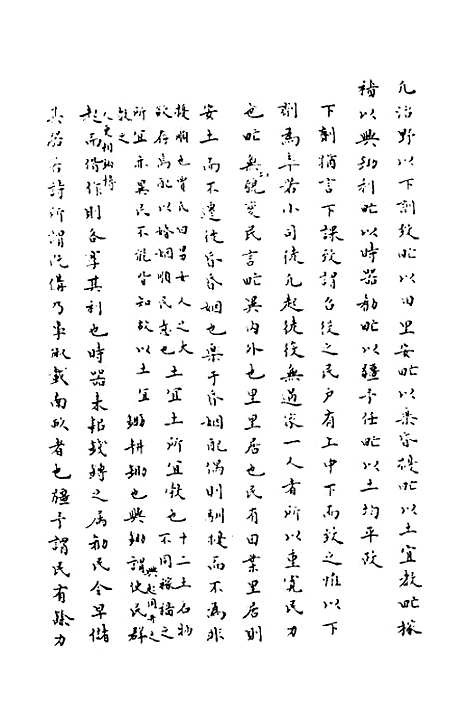 凡治野以下劑致甿以田里安甿以樂昏擾甿以土宜教甿稼
穡以興耡利甿以時器勸甿以彊予任甿以土均平政
下劑猶言下課致謂召從之民戶有上中下而致之惟以下
劑為率若小司徒凡起徒役無過家一人者所以重寛民力
也甿無貌變民言甿異內外也里里居也民有田業里居則
安土而不遷徙昏昏姻也樂于昏姻配偶則馴擾而不為非
擾順也曾民曰男女人之大
欲存焉配以婚姻順民意也
土宜土所宜教也十二土名物
不同稼穡之
所宜亦異民不能皆知故以土宜
教之
耡耕耡也興耡謂使民群
興起同井之
人更相助持
起而偕作則各享其利也時器耒耜錢鎛之屬勸民令早儲
其器若詩所謂既備乃事俶載南畝者也彊予謂民有餘力